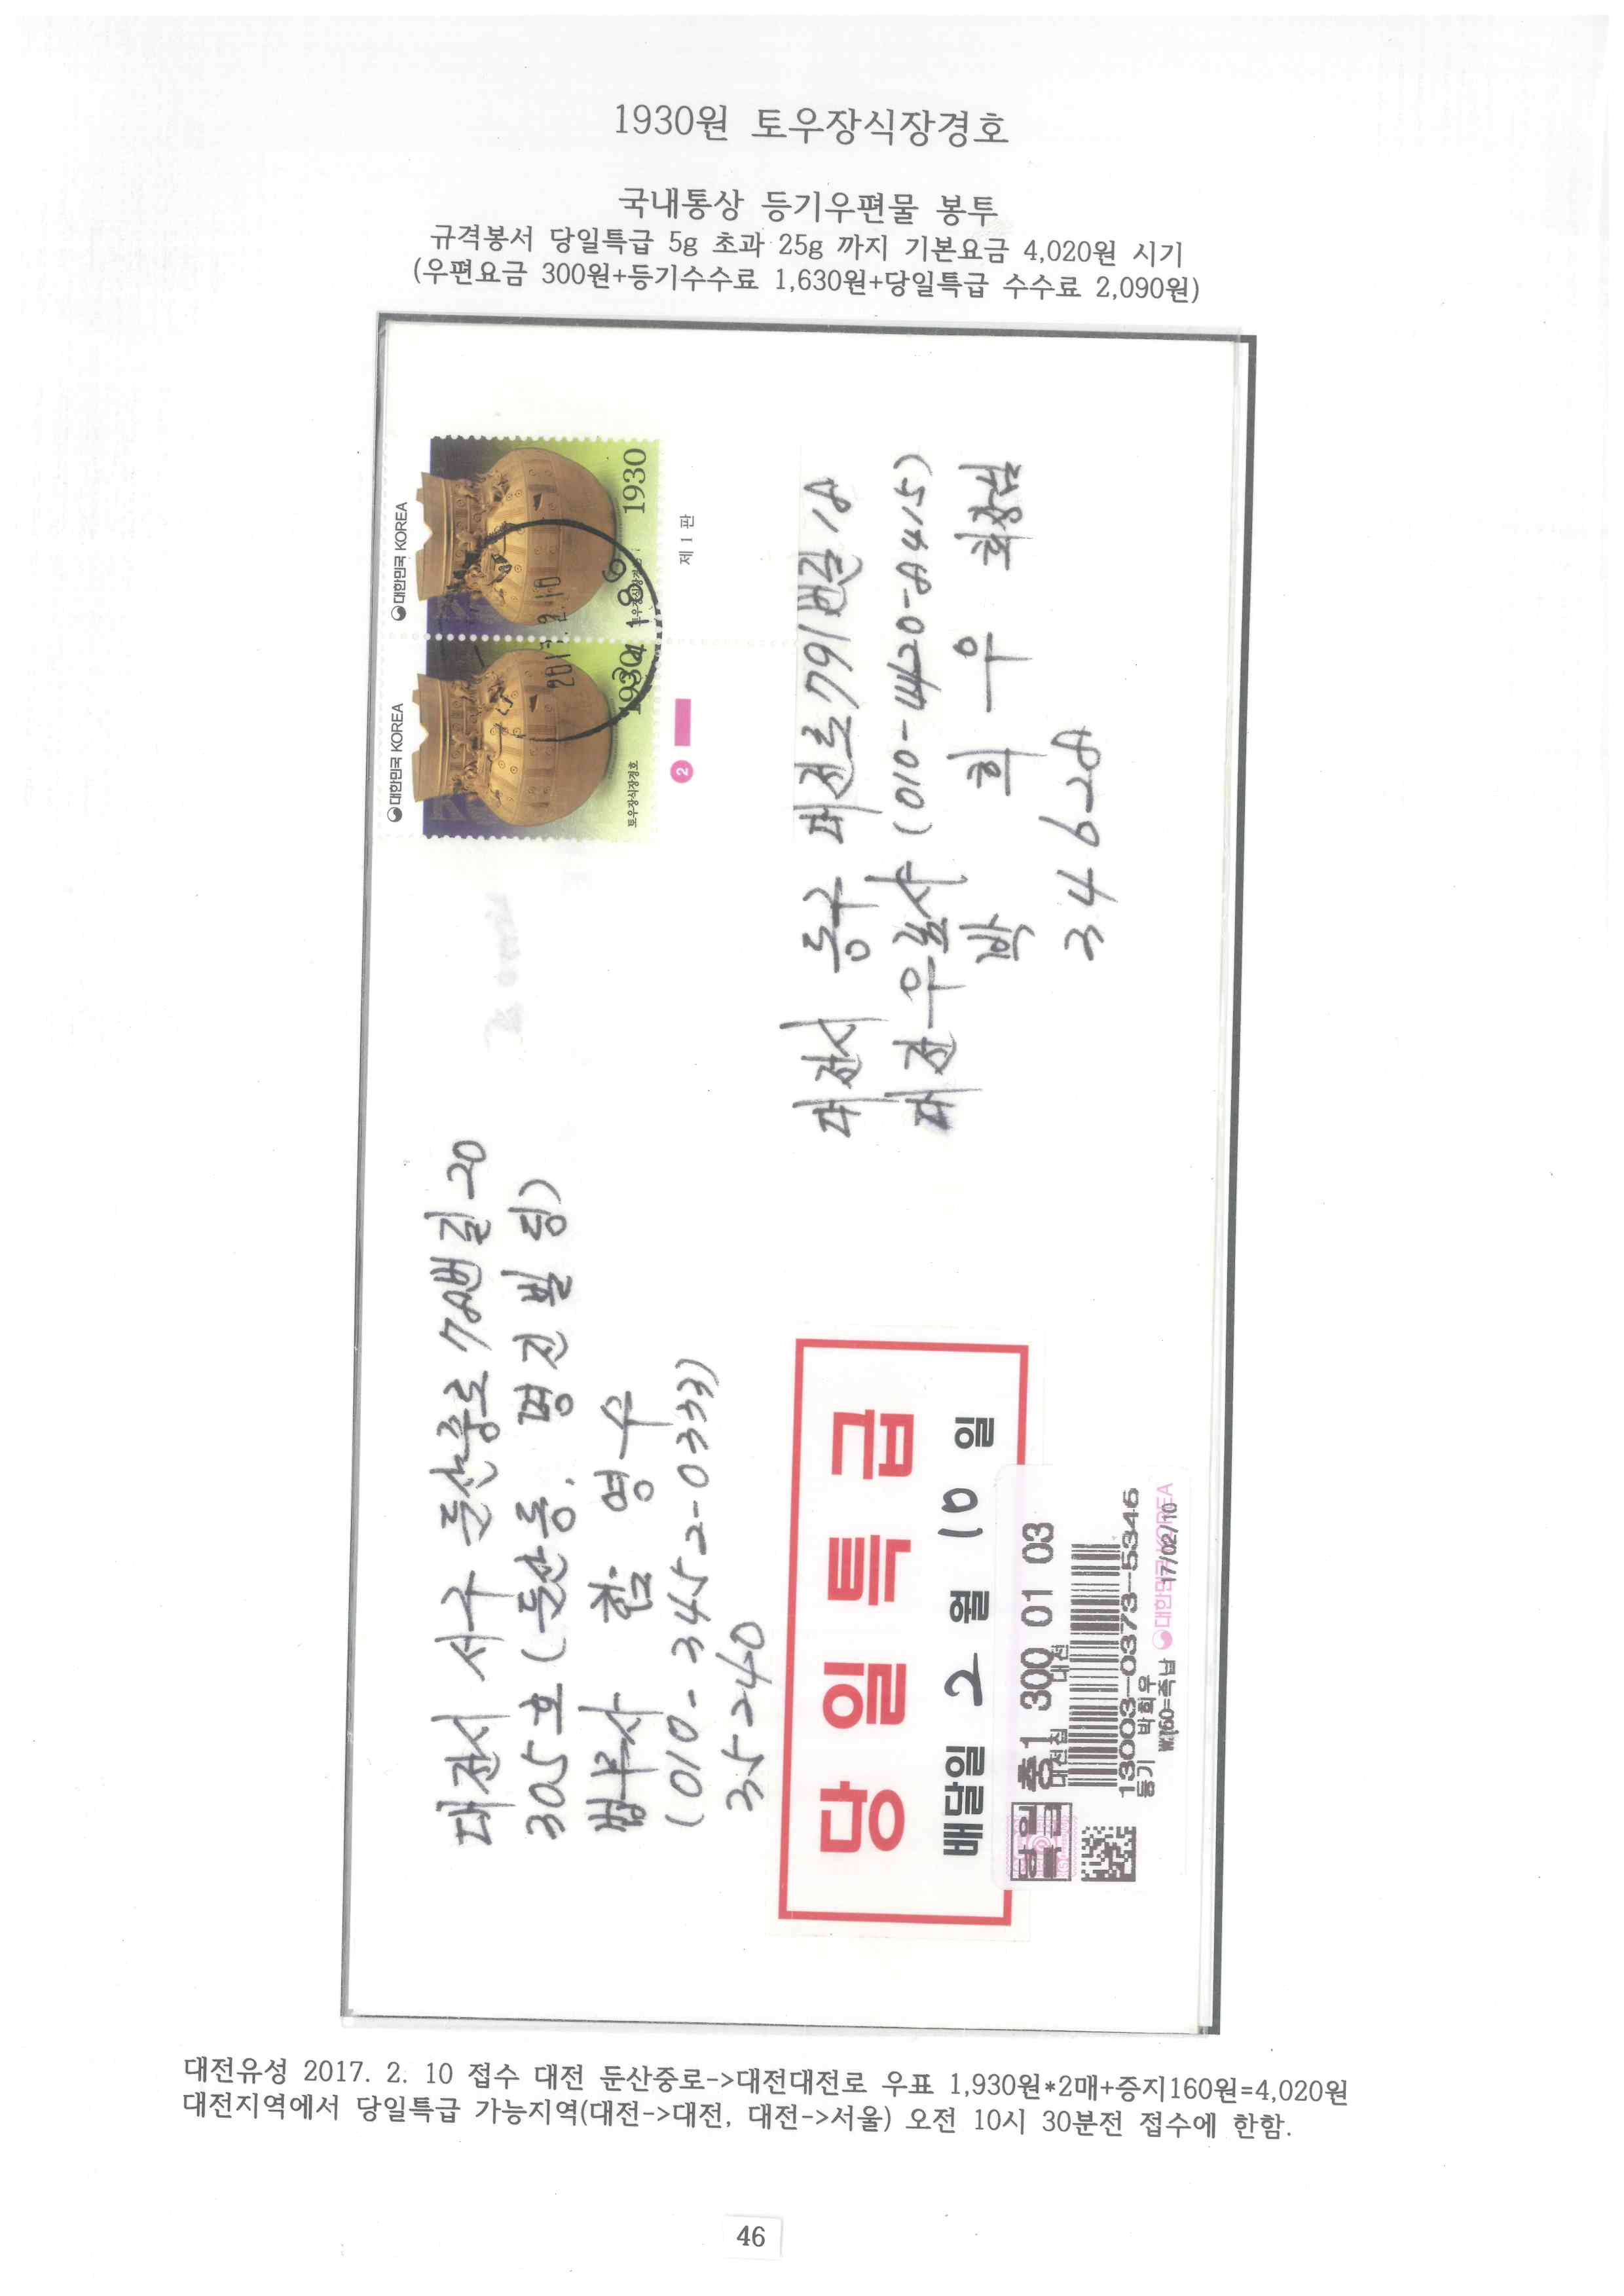 1930원 토우장식장경호
국내통상 등기우편물 봉투
규격봉서 당일특급 5g 초과 25g 까지 기본요금 4,020원 시기
(우편요금 300원+등기수수료 1,630원+당일특급 수수료 2,090원)
대전시 서구 둔산중로 78번길 20
305호 (둔산동. 명진빌딩)
법무사 함 영 수
(010-3452-0333)
35240
대한민국 KOREA
토우장식장경호
1930
대한민국 KOREA
1930
2017.2.10
제 1 판
2
대전시 동구 대전로 791번길 18
대전우표사 (010-4420-8415)
박 희 우 회장님
34628
당일특급
배달일 2 월 10 일
당일특급
충1 300 01 03
대전집 대전
13003-0373-5346
등기 박희우
₩160=족납 대한민국 KOREA 17/02/10
대전유성 2017. 2. 10 접수 대전 둔산중로->대전대전로 우표 1,930원*2매+증지160원=4,020원
대전지역에서 당일특급 가능지역(대전->대전, 대전->서울) 오전 10시 30분전 접수에 한함.
46